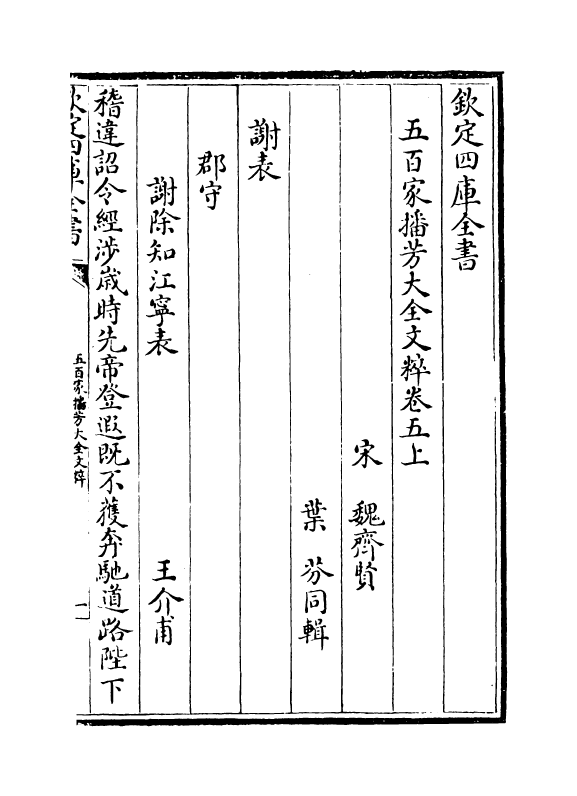 欽定四庫全書
五百家播芳大全文粹卷五上
宋 魏齊賢
葉棻同輯
謝表
郡守
謝除知江寧表 王介甫
稽違詔令經涉歲時先帝登遐既不獲奔馳道路陛下
欽定四庫全書 五百家播芳大全文粹 一